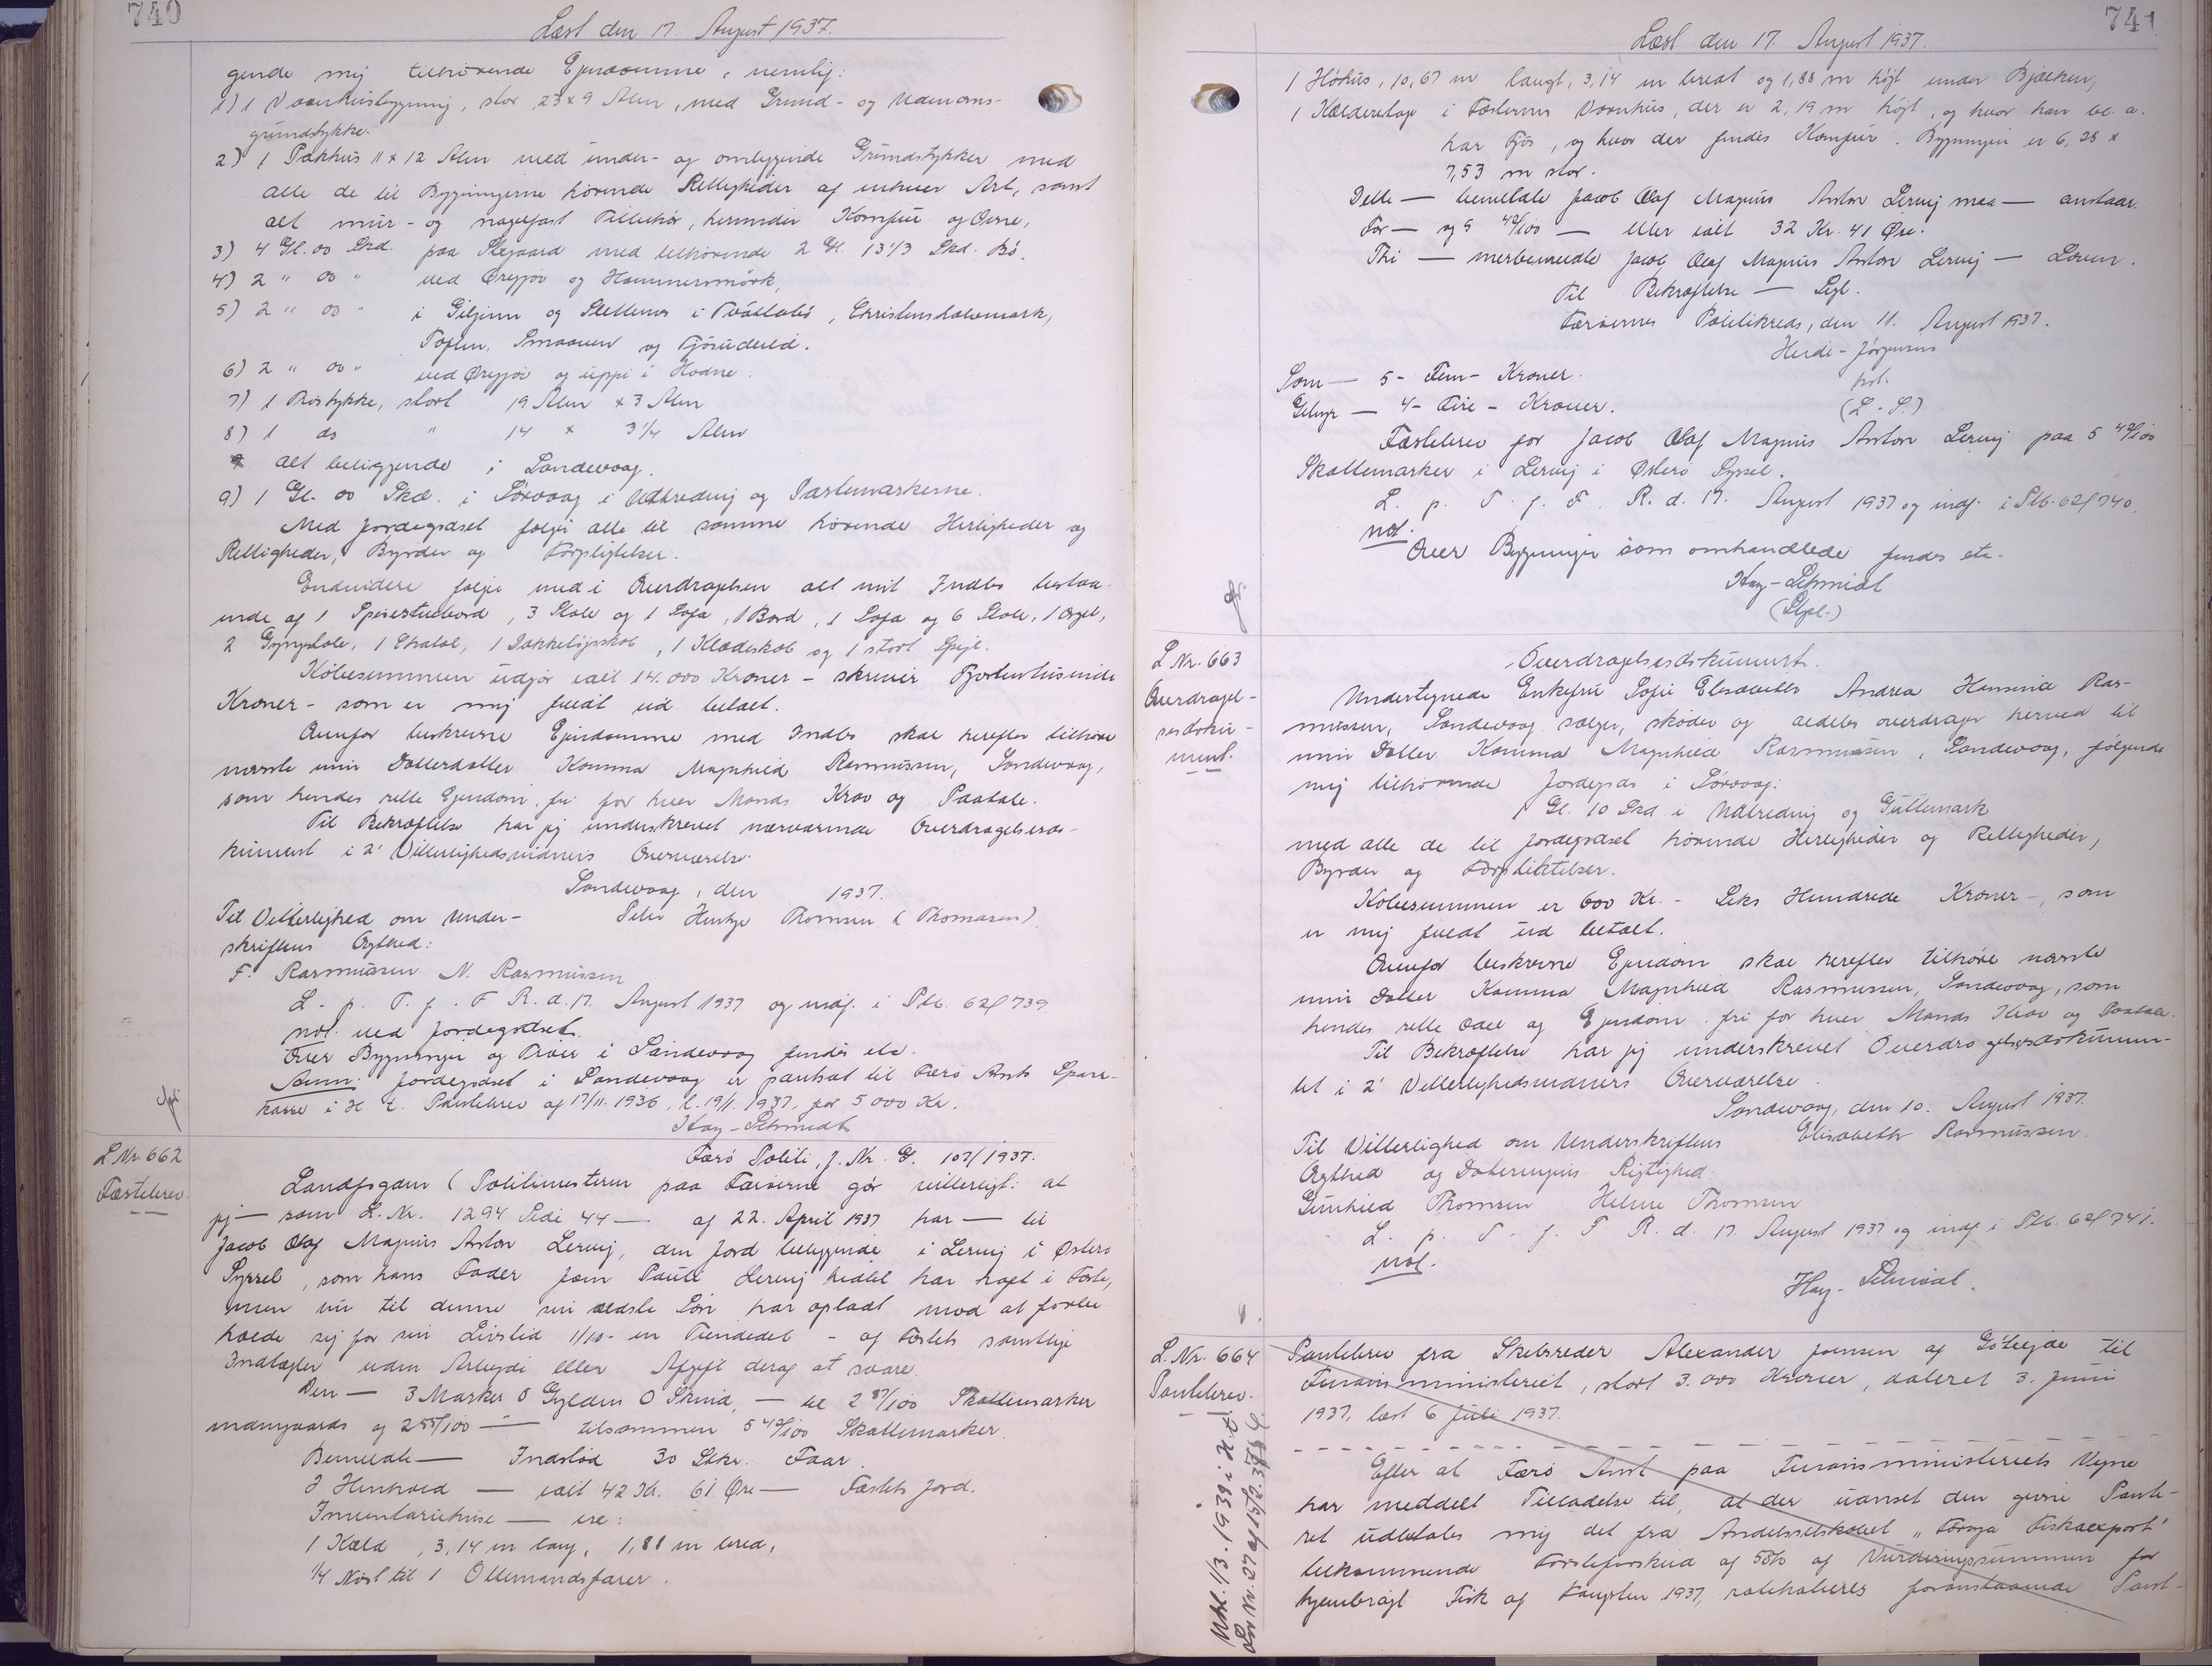 740
Læst den 17. August 1937.
gende mig tilhørende Ejendomme, nemlig:
1) 1 Vaaningsbygning, stor 23 x 9 Alen, med Grund- og Udenoms-
grundstykke.
2) 1 Pakhus 11 x 12 Alen med under- og omliggende Grundstykker med
alle de til Bygningerne hørende Rettigheder af enhver Art, samt
alt mur- og nagelfast Tilbehør, herunder Komfur og Ovne,
3) 4 Gl. 00 Skd. paa Skejaard med tilhørende 2 Gl. 13 1/3 Skd. Bø.
4) 2 " 00 " ved Øregjov og Hammersmörk,
5) 2 " 00 " i Giljinn og Slettenes i , Christenshalvemark,
Toften, Smaauer og
6) 2 " 00 " ved Øregjov og uppi i Hodne.
7) 1 Bøstykke, stort 19 Alen x 3 Alen
8) 1 do " 14 x 3 1/4 Alen
alt beliggende i Sandevaag.
9) 1 Gl. 00 Skd. i Sørvaag i Udbreding og Parlemarkerne.
Med Jordegodset følger alle til samme hørende Herligheder og
Rettigheder, Byrder og Forpligtelser.
Endvidere følger med i Overdragelsen alt mit Indbo bestaa-
ende af 1 Spisestuebord, 3 Stole og 1 Sofa, 1 Bord, 1 Sofa og 6 Stole, 1 Orgel,
2 Gyngestole, 1 Chatol, 1 Dækketøjsskab, 1 Klædeskab og 1 stort Spejl.
Købesummen udgør ialt 14.000 Kroner - skriver Fjortentusinde
Kroner - som er mig fuldt ud betalt.
Ovenfor beskrevne Ejendomme med Indbo skal herefter tilhøre
nævnte min Datterdatter Hamma Magnhild Rasmussen, Sandevaag,
som hendes rette Ejendom, fri for hver Mands Krav og Paatale.
Til Bekræftelse har jeg underskrevet nærværende Overdragelsesdo-
kument i 2' Vitterlighedsvidners Overværelse.
Sandevaag, den 1937.
Til Vitterlighed om Under- Peter Hentze Thomsen (Thomasen)
skriftens Ægthed:
F. Rasmussen N. Rasmussen
L. p. T. f. F. R. d. 17. August 1937 og indf. i Ptb. 62f 739
not. ved Jordegodset.
Over Bygninger og Bøer i Sandevaag findes etc.
Anm: Jordegodset i Sandevaag er pantsat til Færø Amts Spare-
kasse i H. t. Pantebrev af 17/11. 1936, l. 19/1. 1937, for 5000 Kr.
Hay-Schmidt
L Nr. 662
Fæstebrev.
Færø Politi, J. Nr. G. 107/1937.
Landfogden (Politimesteren paa Færøerne gør vitterligt: at
jeg — som L. Nr. 1294 Side 44 — af 22. April 1937 har — til
Jacob Olaf Magnus Anton Lervig, den Jord beliggende i Lervig i Østerø
Syssel, som hans Fader Joen Poul Lervig hidtil har haft i Fæste,
men nu til denne sin ældste Søn har opladt mod at forbe-
holde sig for sin Livstid 1/10 - en Tiendedel - af Fæstets samtlige
Indtægter uden Arbejde eller Afgift deraf at svare.
Den — 3 Marker 0 Gylden 0 Skind, — til 2 87/100 Skattemarker
indengaards og 2 55/100 — tilsammen 5 42/100 Skattemarker.
Bemeldte — Indstød 30 Stkr. Faar.
I Henhold — ialt 42 Kr. 61 Øre — Fæstets Jord.
Inventariehuse — ere:
1 Hjald, 3,14 m lang, 1,88 m bred,
1/4 Nøst til 1 Ottemandsfarer.
741
Læst den 17. August 1937.
1 Høhus, 10,67 m langt, 3,14 m bredt og 1,88 m højt under Bjælken,
1 Kælderetage i Fæsterens Vaanhus, der er 2,19 m højt, og hvor han bl. a.
har Fjós, og hvor der findes Komfur. Bygningen er 6,28 x
7,53 m stor.
Dette — bemeldte Jacob Olaf Magnus Anton Lervig maa — anstaar.
For — og 5 42/100 — eller ialt 32 Kr. 41 Øre.
Thi — merbemeldte Jacob Olaf Magnus Anton Lervig — Loven.
Til Bekræftelse — Segl.
Færøernes Politikreds, den 11. August 1937.
Heide-Jørgensen
kst.
Som — 5 - Fem - Kroner.
Gebyr — 4 - Fire - Kroner. (L. S.)
Fæstebrev for Jacob Olaf Magnus Anton Lervig paa 5 42/100
Skattemarker i Lervig i Østerø Syssel.
L. p. T. f. F. R. d. 17. August 1937 og indf. i Ptb. 62f 740.
not.
Over Bygninger som omhandlede findes etc.
Hay-Schmidt
(Stpl.)
L Nr. 663
Overdragel-
sesdoku-
ment.
Overdragelsesdokument.
Undertegnede Enkefru Sofie Elisabeth Andrea Hansina Ras-
mussen, Sandevaag sælger, skøder og aldeles overdrager herved til
min Datter Hamma Magnhild Rasmussen, Sandevaag, følgende
mig tilhørende Jordegods i Sørvaag:
1 Gl. 10 Skd i Udbreding og Gullemark
med alle de til Jordegodset hørende Herligheder og Rettigheder,
Byrder og Forpligtelser.
Købesummen er 600 Kr. - Seks Hundrede Kroner -, som
er mig fuldt ud betalt.
Ovenfor beskrevne Ejendom skal herefter tilhøre nævnte
min Datter Hamma Magnhild Rasmussen, Sandevaag, som
hendes rette Odel og Ejendom fri for hver Mands Krav og Paatale.
Til Bekræftelse har jeg underskrevet Overdragelsesdokumen-
tet i 2' Vitterlighedsvidners Overværelse.
Sandevaag, den 10. August 1937.
Til Vitterlighed om Underskriftens Elisabeth Rasmussen.
Ægthed og Dateringens Rigtighed:
Gunhild Thomsen Helene Thomsen
L. p. T. f. F. R. d. 17. August 1937 og indf. i Ptb. 62f 741.
not.
Hay-Schmidt.
L. Nr. 664
Pantebrev.
Udsl. 1/3. 1938 i H. t.
Lov Nr. 27 af 15/2. 38
Pantebrev fra Skibsreder Alexander Joensen af Gøtegjov til
Finansministeriet, stort 3.000 Kroner, dateret 3. Juni
1937, læst 6 Juli 1937.
Efter at Færø Amt paa Finansministeriets Vegne
har meddelt Tilladelse til, at der uanset den givne Pante-
ret udbetales mig det fra Andelsselskabet "Føroya Fiskaexport"
tilkommende Førsteforskud af 55% af Vurderingssummen for
hjembragt Fisk af Fangsten 1937, rateholderes foranstaaende Pant-